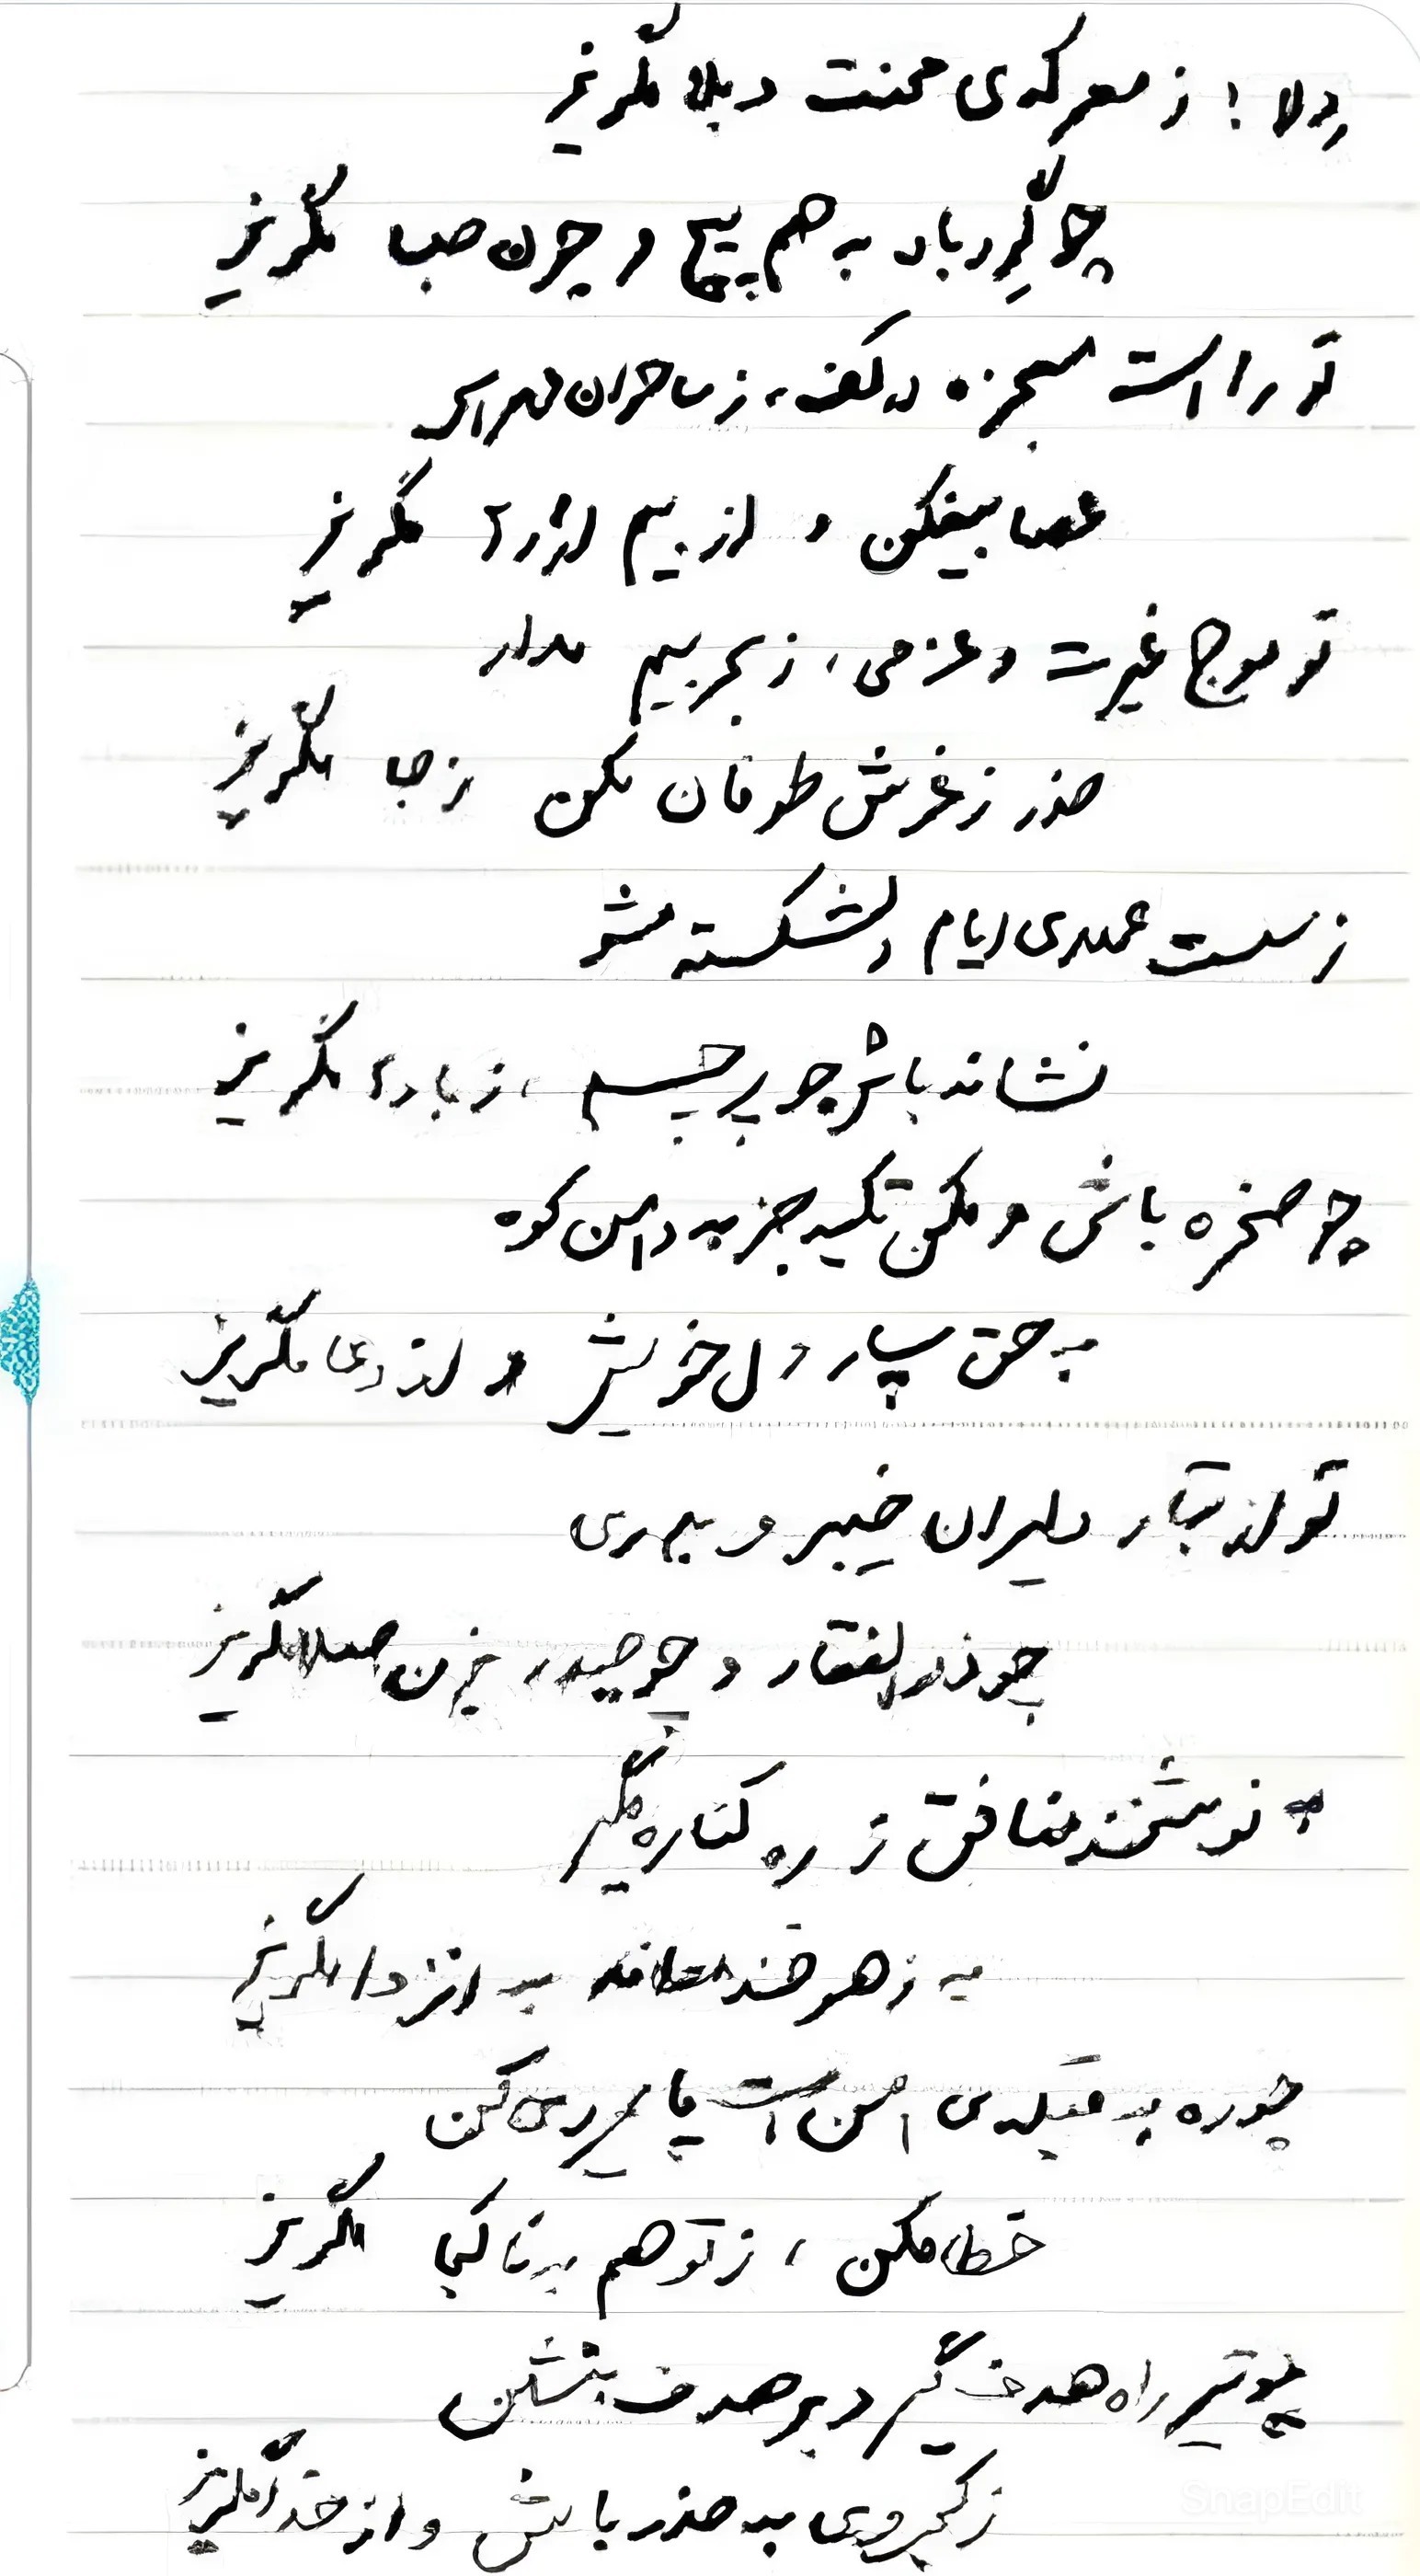 دلا! ز معرکه‌ی محنت و بلا مگریز
چو گردباد به هم پیچ و چون صبا مگریز
تو را است معجزه در کف، ز ساحران مهراس
عصا بیفکن و از بیم اژدها مگریز
تو موج غیرت و عزمی، ز بحر بیم مدار
حذر ز غرش طوفان مکن ز جا مگریز
ز سست عهدی ایام دلشکسته مشو
نشانه باش چو پرچم، ز بادها مگریز
چو صخره باش و مکن تکیه جز به دامن کوه
به حق سپار دل خویش و از دعا مگریز
تو از تبار دلیران خیبر و بدری
چو ذوالفقار و چو حیدر بزن صلا مگریز
به نوشخند منافق ز ره کناره مگیر
به زهرخند به انزوا مگریز
چو ره به قبله‌ی امن است پایمردی کن
خطا مکن، ز توهم به ناکجا مگریز
چو تیر راه هدف گیر و بر هدف بنشین
ز کجروی به حذر باش و از خدا مگریز
SnapEdit